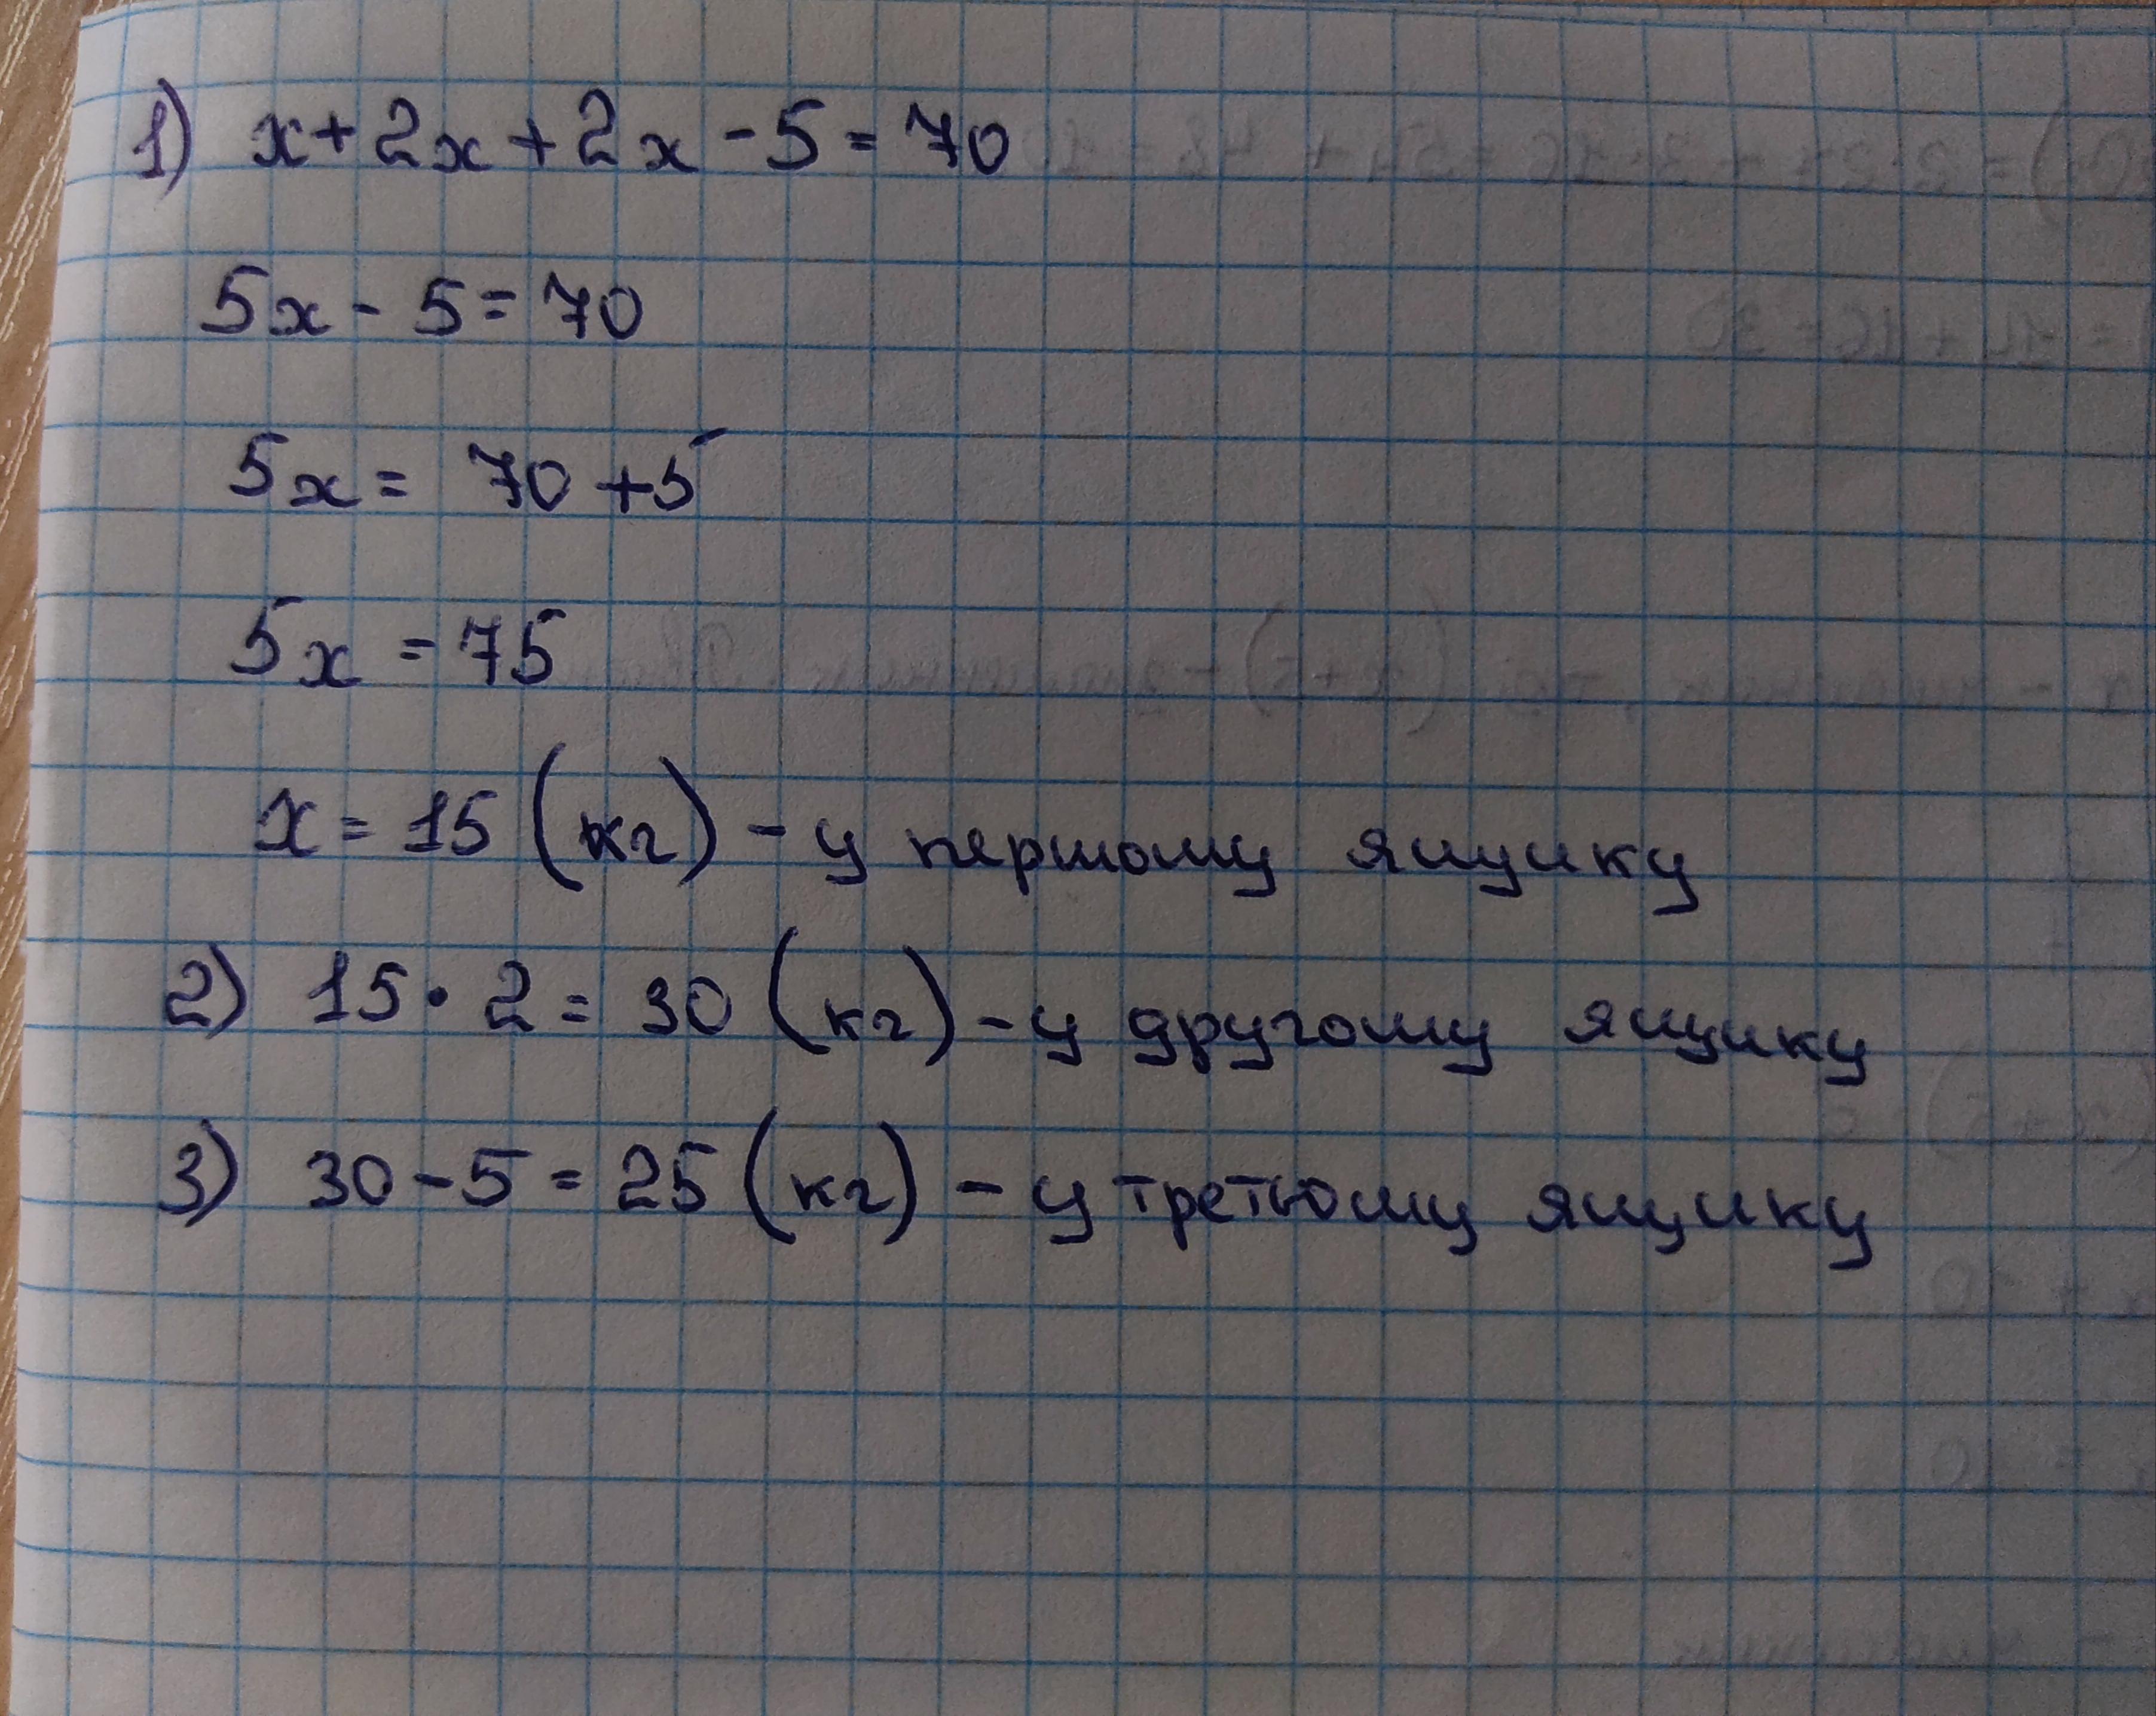 1) x+2x+2x-5=70
5x-5=70
5x= 70+5
5x=75
x=15 (кг) - у першому ящику
2) 15·2=30 (кг) - у другому ящику
3) 30-5=25 (кг) - у третьому ящику